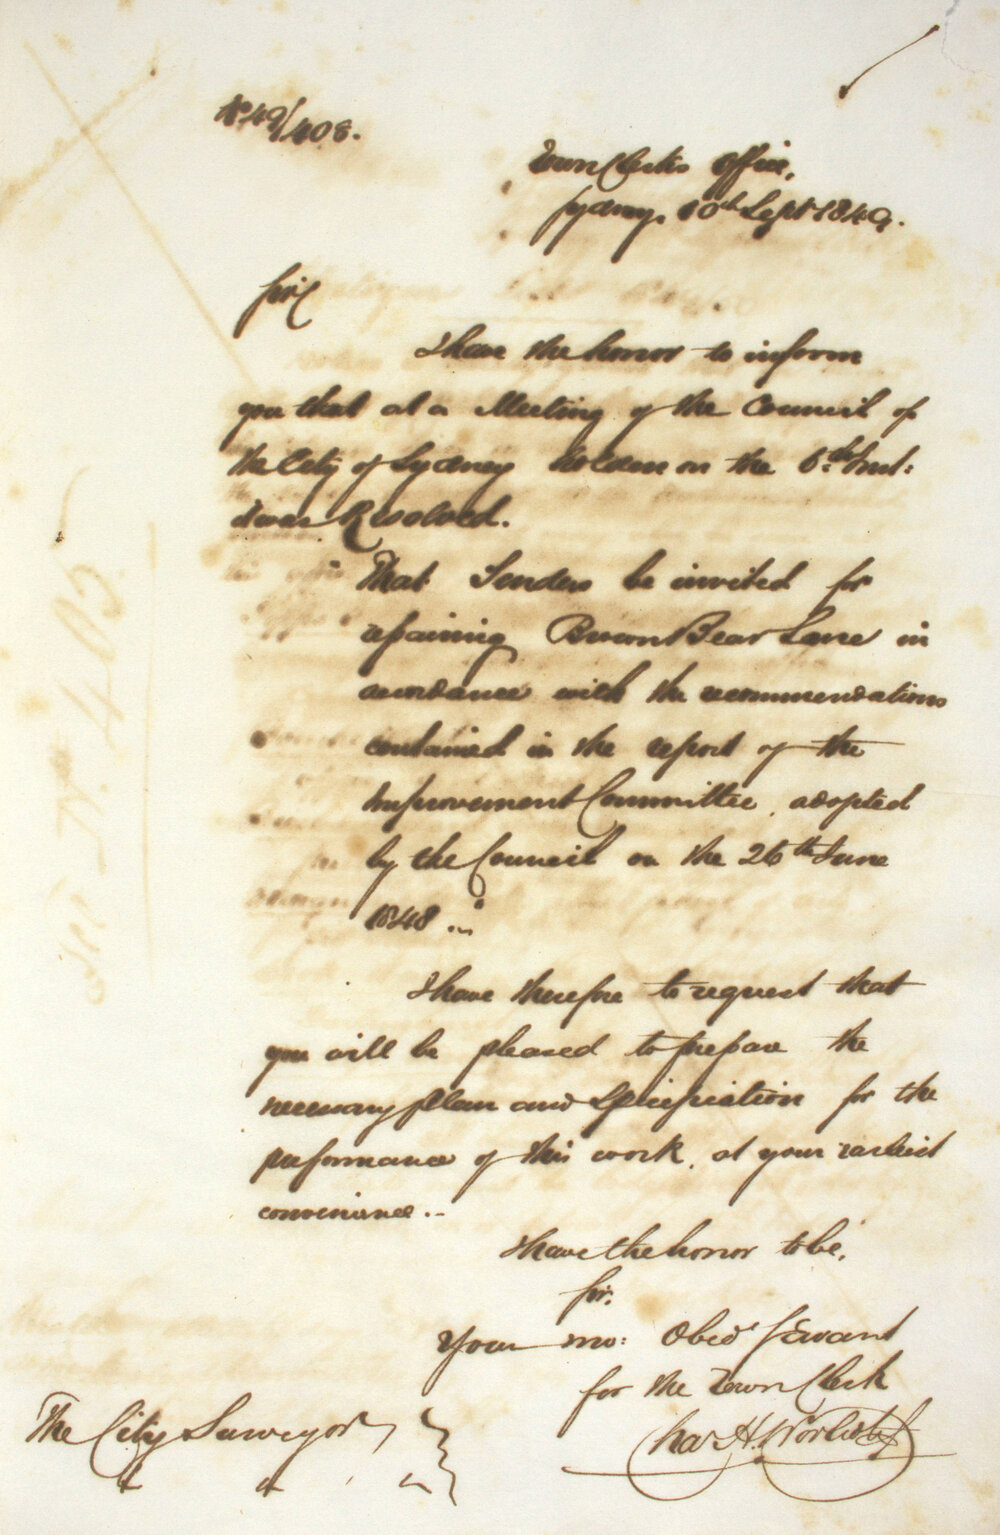 No 49/408.
Town Clerks Office,
Sydney, 10th Sept 1849.
Sir
I have the honor to inform
you that at a Meeting of the Council of
the City of Sydney holden on the 6th Inst:
it was Resolved.
"That Tenders be invited for
repairing Brown Bear Lane in
accordance with the recommendations
contained in the report of the
Improvement Committee, adopted
by the Council on the 26th June
1848 ..."
I have therefore to request that
you will be pleased to prepare the
necessary plan and Specification for the
performance of this work, at your earliest
convenience..
I have the honor to be,
Sir,
Your mo: Obed Servant
for the Town Clerk
Chas H.
The City Surveyor